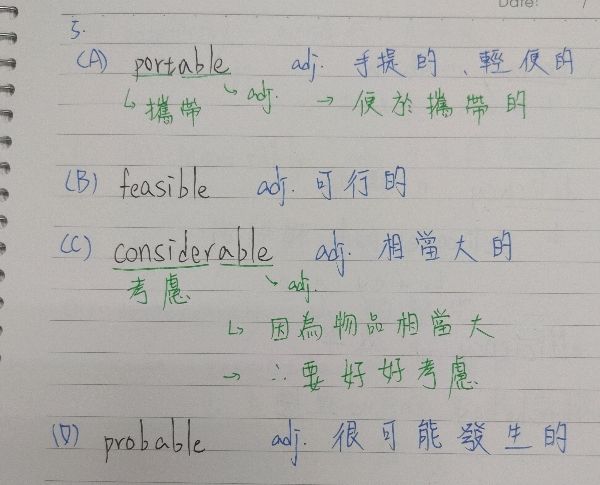 Date: /
5.
(A) portable adj. 手提的、輕便的
↳ 攜帶 ↘ adj. → 便於攜帶的
(B) feasible adj. 可行的
(C) considerable adj. 相當大的
考慮 ↘ adj.
↳ 因為物品相當大
→ ∴要好好考慮
(D) probable adj. 很可能發生的